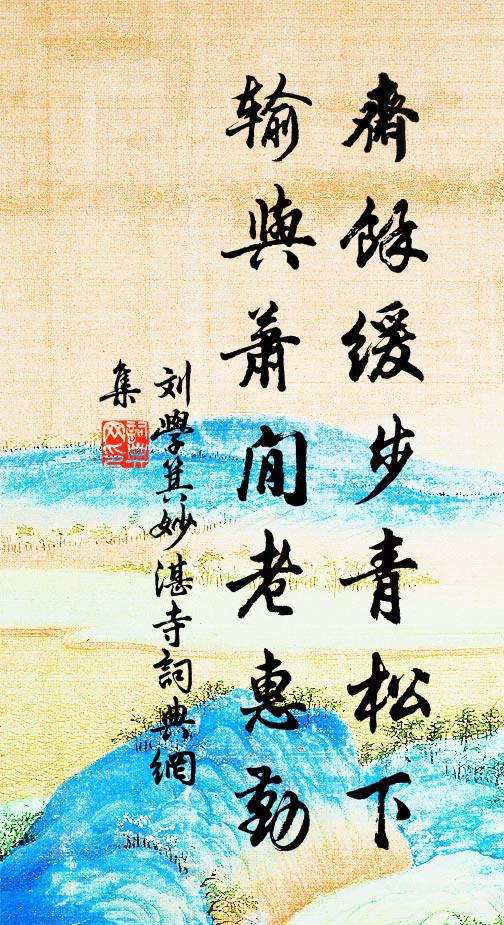 齋餘緩步青松下
输與蕭閒老惠勤
刘學箕妙湛寺詞典網
集